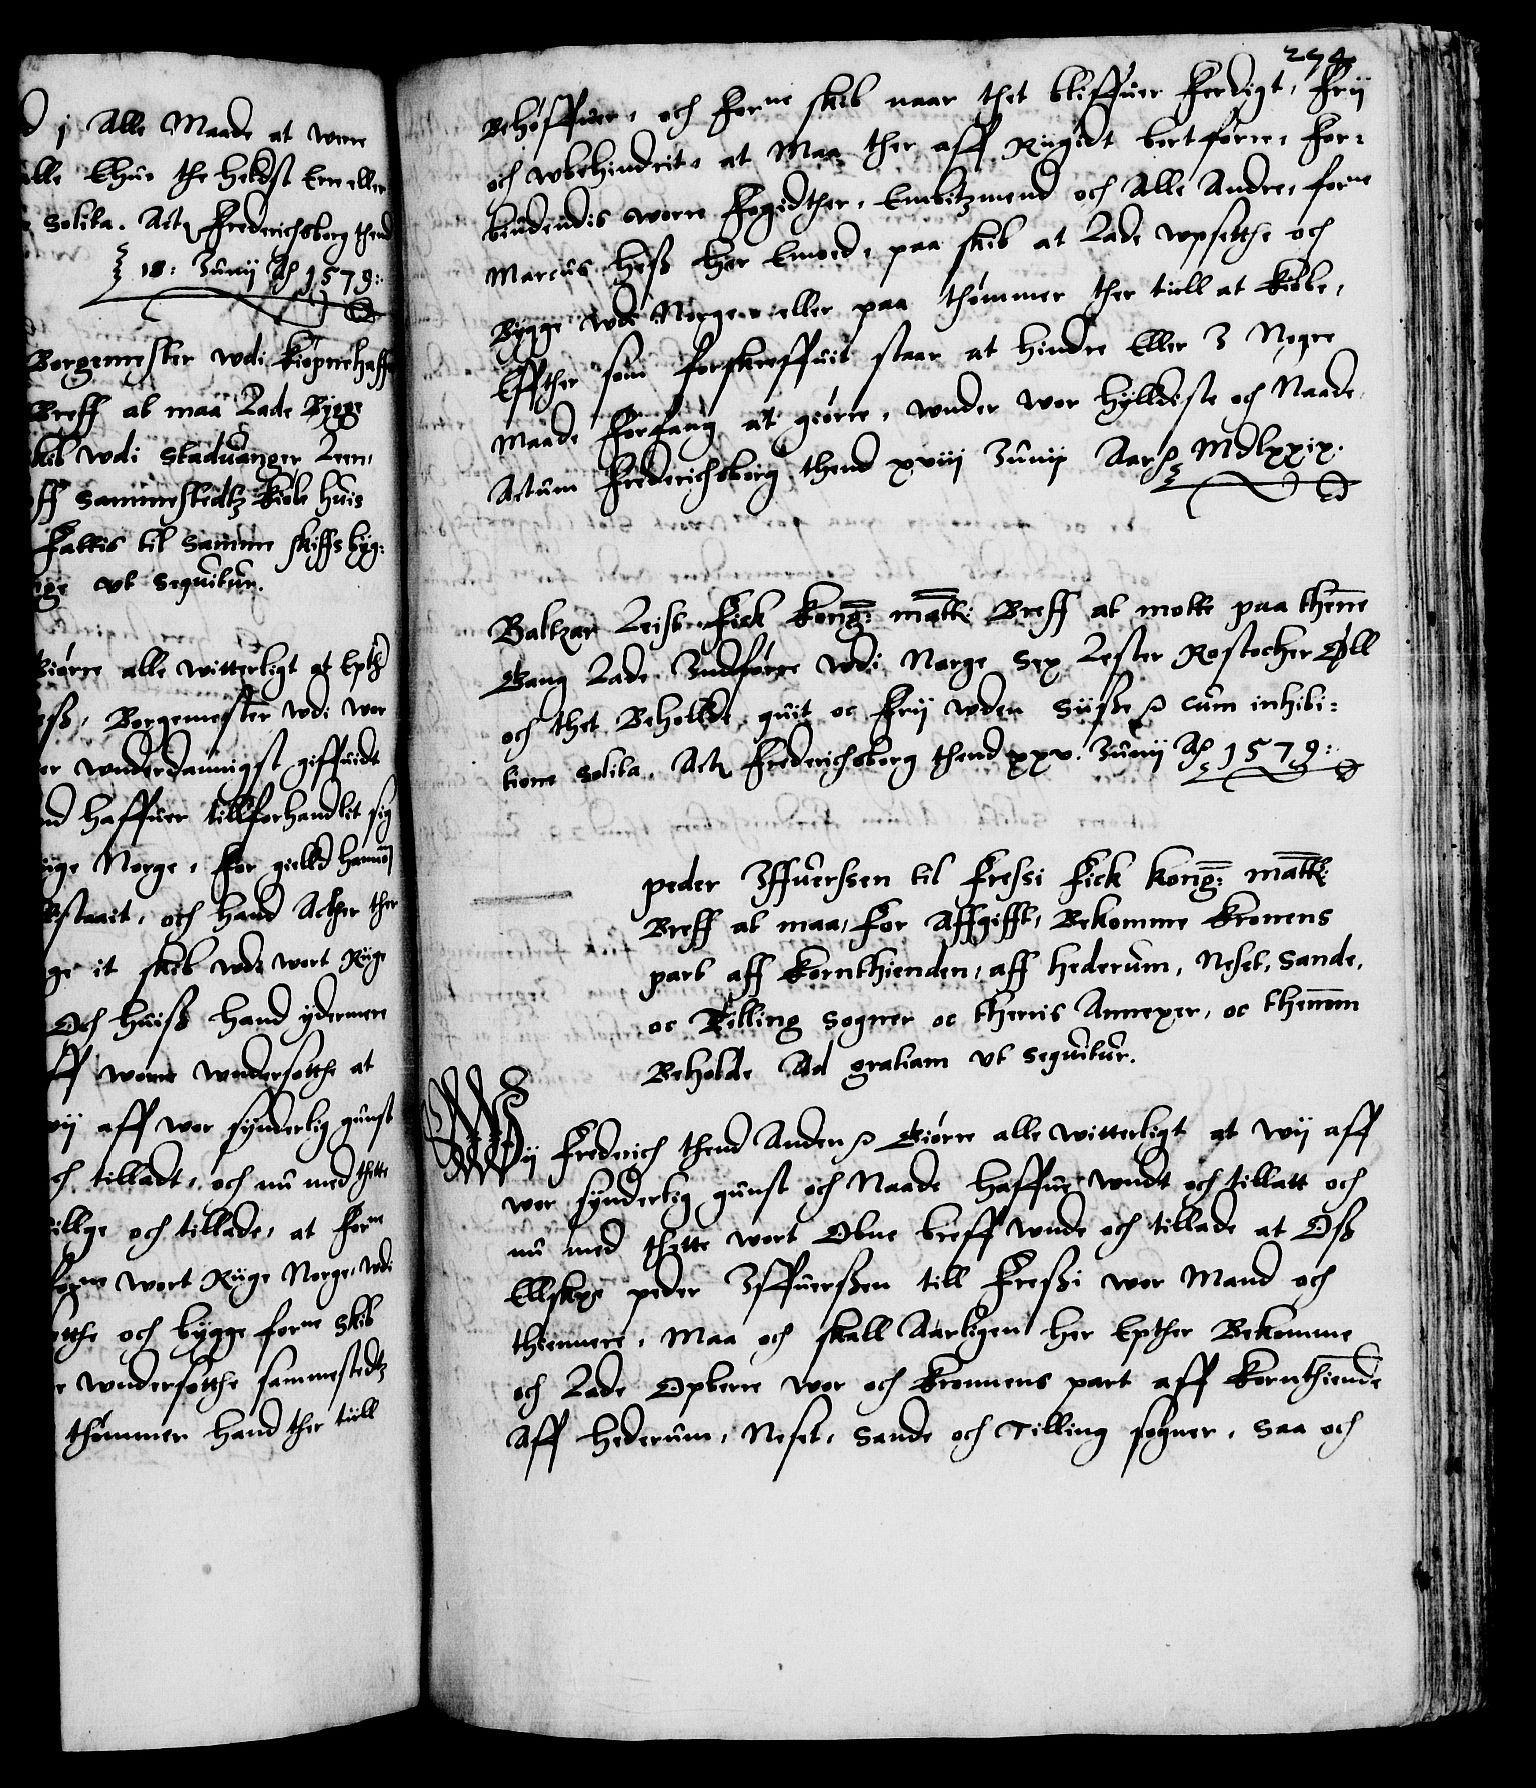 j Alle Maade at were
alle Ehuo the heldst Ere eller
solita. Act Frederichsborg thend
18: Junij A° 1579:
Borgemester wdi Kiøpnehaffn
Breff at maa Lade Bygge
skib wdi Staduanger Leen,
off Sammestedtz Kiøbe huis
Fattis til samme skiffs byg:
ut sequitur.
Giørre alle witterligt at Epth
Borgemester wdi wor
wnderdannigst giffuidt
haffuer tillforhandlit sig
Norge, for gielld hannom
och hand Acther ther
it skib wdi wort Rige
Och huiss hand ydermere
worre wndersotthe at
wij aff wor synderlig gunst
och tilladt, och nu med thette
och tillade, at forne
forne wort Rige Norge, wdi
och bygge forne Skib
wndersotthe sammestedtz
thømmer hand ther till
274
Behøffuer, och forne skib naar thet bliffuer Ferdigt, Frij
och wbehindrit, at Maa ther aff Rigidt bort førre, For:
biudendis worre Fogidther, Embitzmend och Alle Andre, forne
Marcus Hess her Emoed, paa skib at Lade wpsetthe och
Bygge wdi Norge, eller paa thømmer ther till at Kiøbe,
Effther som forskreffuit staar at hindre Eller J Nogre
Maade Forfang at giørre, wnder wor hylldiste och Naade
Actum Frederichsborg thend xviij Junij Aar Mdlxxix.
Baltzar Leist Fick kong: matt: Breff at motte paa thenne
Gang Lade Indførre wdi Norge Sex Lester Rostocher Øll
och thet Beholde quit oc Frij wden Siisse cum inhibi:
tione solita. Act Frederichsborg thend xxv. Junij A° 1579:
Peder Iffuerssen til Fressi Fick kong: matt:
Breff at maa, For Affgifft, Bekomme Kronens
part aff Kornthienden, aff Hederum, Neset, Sande,
oc Tilling Sogner oc therris Annexer, oc thennom
Beholde Ad gratiam ut sequitur.
Wij Frederich thend Anden Giørre alle witterligt at wij aff
wor synderlig gunst och Naade haffue wndt och tillatt och
nu med thette wort Obne breff wnde och tillade at Oss
Ellskge Peder Iffuerssen till Fressi wor Mand och
thiennere, Maa och skall Aarligen her Epther Bekomme
och Lade Opberre wor och Kronnens part aff Kornthiende
Aff Hederum, Neset, Sande och Tilling sogner, saa och